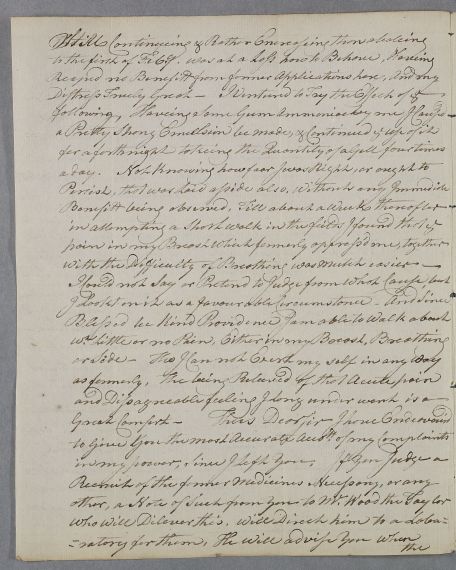 Still Continueing & Rather Encreasing then abateing
to the first of Feby. was at a Loss how to Behave, Having
Receivd no Benefit from former Applications here, and my
Distress Truely Great — I Ventured to Try the Effects of ye
following, Haveing some Gum Ammoniac by me I Causd
a Pretty Strong Emulsion be made, & Continued ye use of it
for a forthnight takeing the Quantity of a Gill four times
a day. Not Knowing how far I was Right, or ought to
Persist, that was Laid aside also, without any Immediate
Benefitt being observed, Till about a Week thereafter
in attempting a Short walk in the fields I found that ye
pain in my Breast which formerly oppressed me, together
with the Difficulty of Breathing was much easier —
I could not Say or Pretend to Judge from What Cause but
I Look'd on it as a favourable Circumstance — And since
Blessed be Kind Providence I am able to Walk about
wt. little or no Pain, Either in my Breast, Breathing
or Side — Tho I Can not Exert my self in any Way
as formerly, The being Relieved of that Acute pain
and Disagreeable feeling I long under went is a
Great Comfort — Thus Dear Sir I have Endeavourd
to Give You the most Accurate Acct. of my Complaints
in my power, since I left You, If You Judge a
Recruit of the former Medicines Necessary, or any
other, a Note of Such from You to Mr. Wood the Taylor
who will Deliver this, will Direct him to a Labo-
-ratory for them, He will advise You when
the